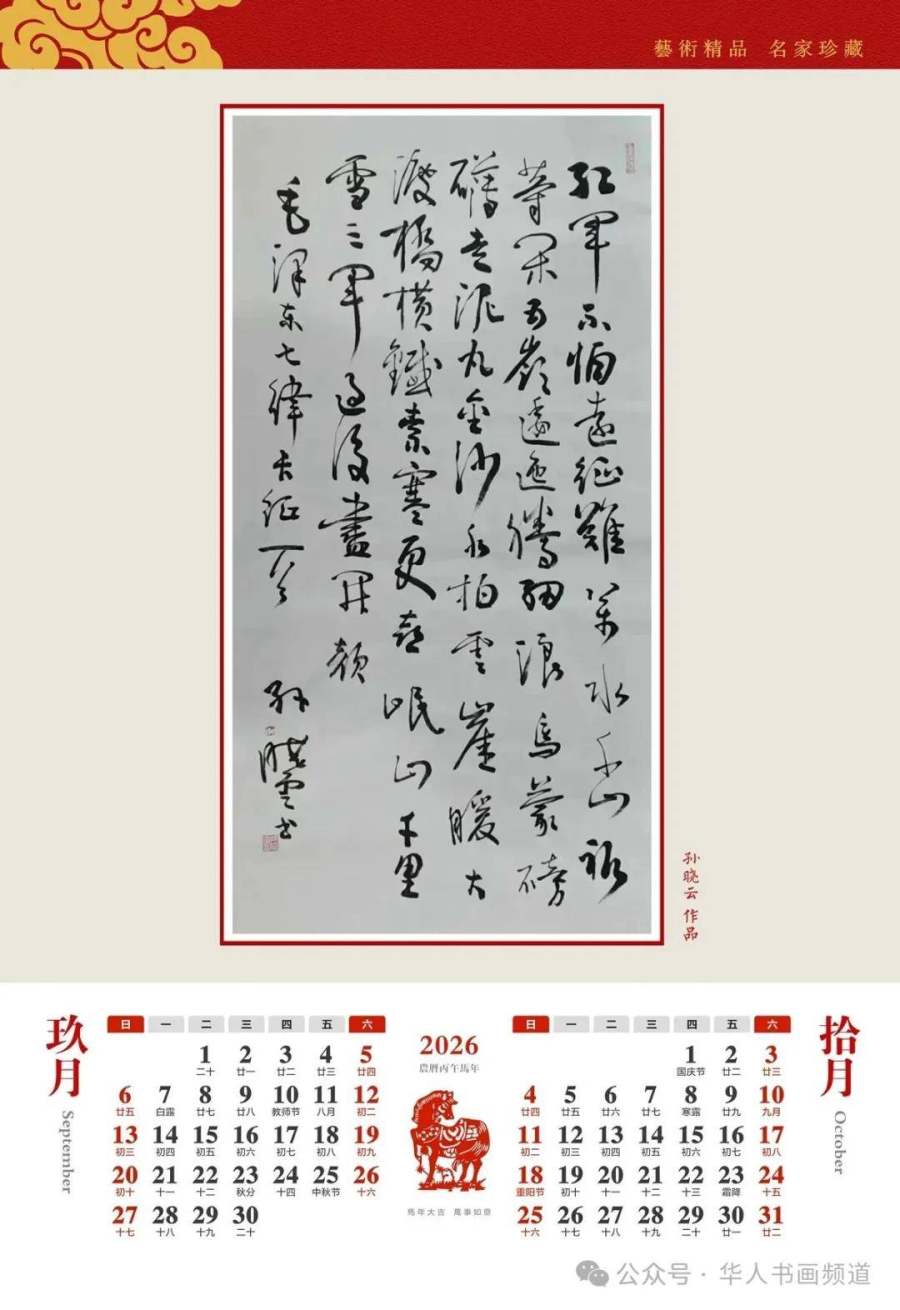 藝術精品 名家珍藏
紅軍不怕遠征難萬水千山祇
等閑五嶺逶迤騰細浪烏蒙磅
礴走泥丸金沙水拍雲崖暖大
渡橋橫鐵索寒更喜岷山千里
雪三軍過後盡開顏
毛澤東七律長征一首
孫曉雲書
孙晓云 作品
玖月
September
日 一 二 三 四 五 六
1 2 3 4 5
二十 廿一 廿二 廿三 廿四
6 7 8 9 10 11 12
廿五 白露 廿七 廿八 教师节 八月 初二
13 14 15 16 17 18 19
初三 初四 初五 初六 初七 初八 初九
20 21 22 23 24 25 26
初十 十一 十二 秋分 十四 中秋节 十六
27 28 29 30
十七 十八 十九 二十
2026
農曆丙午馬年
馬年大吉 萬事如意
日 一 二 三 四 五 六
1 2 3
国庆节 廿二 廿三
4 5 6 7 8 9 10
廿四 廿五 廿六 廿七 寒露 廿九 九月
11 12 13 14 15 16 17
初二 初三 初四 初五 初六 初七 初八
18 19 20 21 22 23 24
重阳节 初十 十一 十二 十三 霜降 十五
25 26 27 28 29 30 31
十六 十七 十八 十九 二十 廿一 廿二
拾月
October
公众号 · 华人书画频道